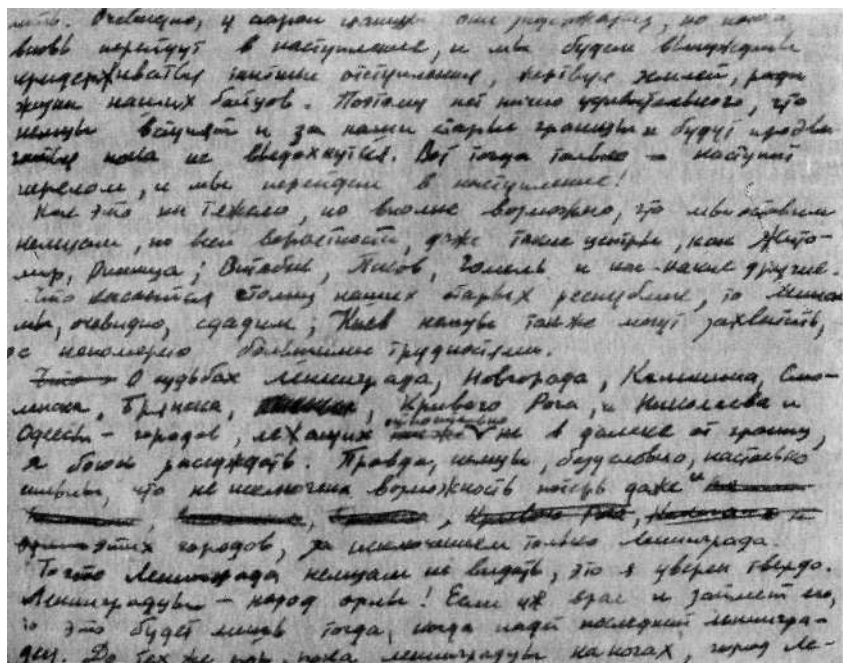 Очевидно, у старой границы они задержатся, но потом
вновь перейдут в наступление, и мы будем вынуждены
придерживаться тактики отступления, жертвуя землей, ради
жизни наших бойцов. Поэтому нет ничего удивительного, что
немцы вступят и за наши старые границы и будут продви-
гаться пока не выдохнутся. Вот тогда только – наступит
перелом, и мы перейдем в наступление!
Как это ни тяжело, но вполне возможно, что мы оставим
немцам, по всей вероятности, даже такие центры, как Жито-
мир, Винница, Витебск, Псков, Гомель и кое-какие другие.
Что касается столиц наших старых республик, то Минск
мы, очевидно, сдадим; Киев немцы также могут захватить,
с непомерно большими трудностями.
О судьбах Ленинграда, Новгорода, Калинина, Смо-
ленска, Брянска, Кривого Рога, Николаева и
Одессы – городов, лежащих относительно не в далеке от границ,
я боюсь рассуждать. Правда, немцы, безусловно, настолько
сильны, что не исключена возможность потерь даже и
этих городов, за исключением только Ленинграда.
То что Ленинграда немцам не видать, это я уверен твердо.
Ленинградцы – народ орлы! Если уж враг и займет его,
то это будет лишь тогда, когда падет последний ленингра-
дец. До тех же пор, пока ленинградцы на ногах, город Ле-